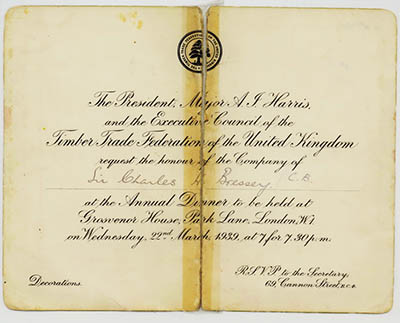 The President, Major A. J. Harris,
and the Executive Council of the
Timber Trade Federation of the United Kingdom
request the honour of the Company of
Sir Charles H. Bressey C.B.
at the Annual Dinner to be held at
Grosvenor House, Park Lane, London, W.1
on Wednesday, 22nd March, 1939, at 7 for 7.30 p.m.
Decorations.
R.S.V.P. to the Secretary,
69, Cannon Street, E.C.4.